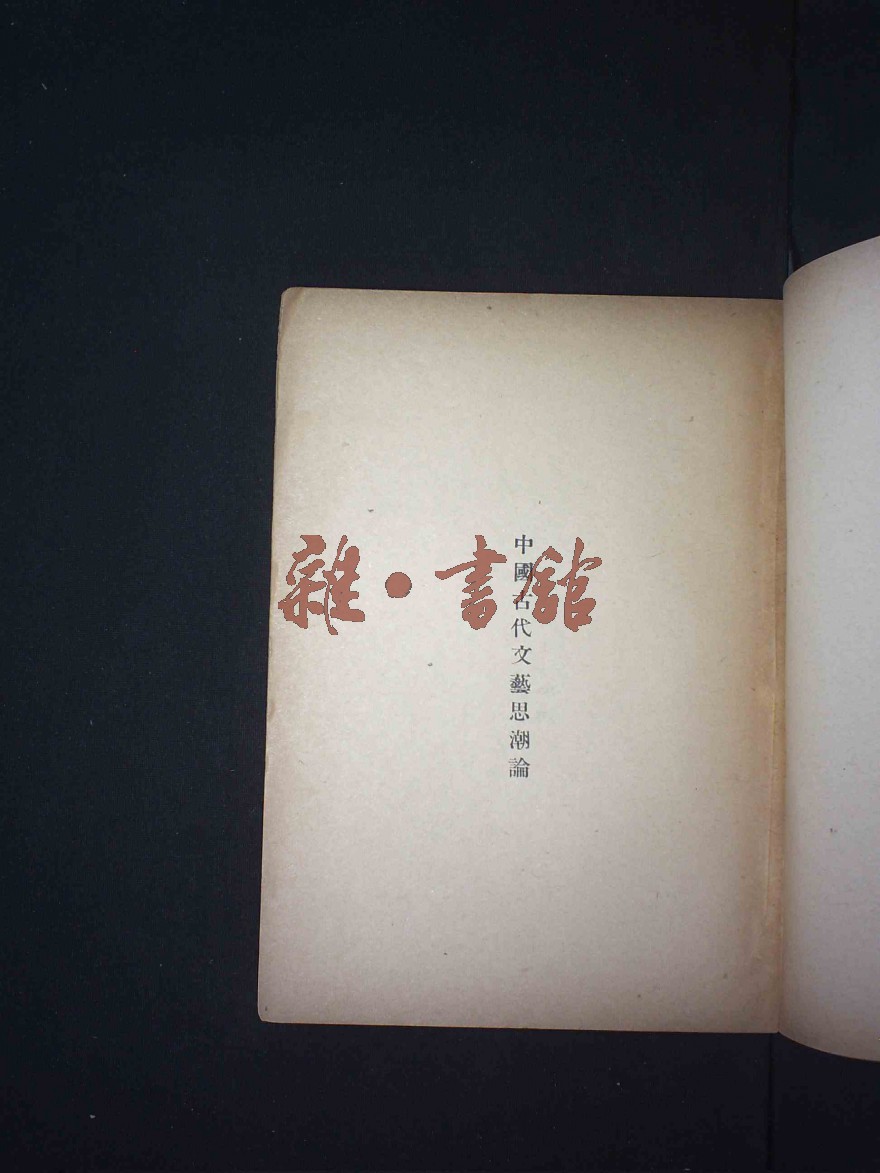 中國古代文藝思潮論
雜·書館